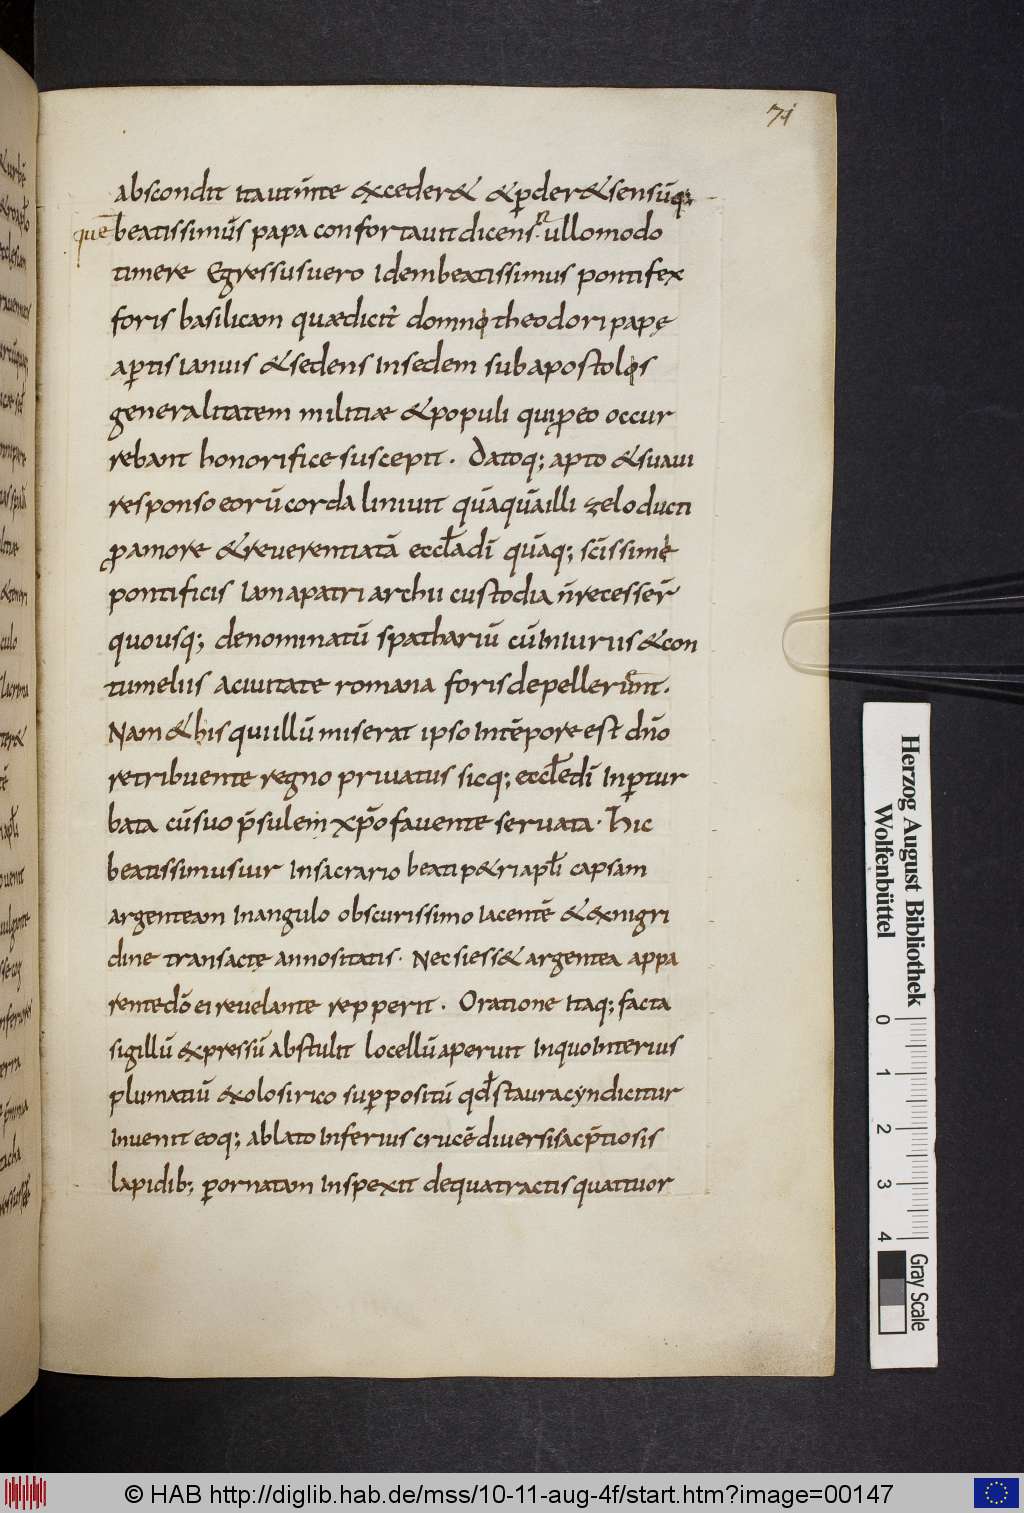 74
abscondit itautm̅te excederet et p̅deret sensūq;
que beatissimus papa confortauit dicens. n ullomodo
timere Egressusuero Idembeatissimus pontifex
foris basilicam quædicit̉ domno theodori papę
ap̅tis Ianuis etsedens Insedem subapostolos
generalitatem militiæ etpopuli quip̅eo occur
rebant honorifice suscepit. Datoq; apto etsuaui
responso eorū corda liniuit quāquāilli zeloducti
ꝓamore etreuerentiatā eccładī quāq; scīssime
pontificis Iamapatri archii custodia n̅recesser̅
quousq; denominatū spathariū cūIniuriis etcon
tumeliis Aciuitate romana forisdepellerunt.
Nam ethis quiillū miserat ipso Intēpore est dn̅o
retribuente regno priuatus sicq; eccłedī Inp̅tur
bata cūsuo p̅sulem xp̅o fauente seruata. Hic
beatissimusuir Insacrario beati petri apłi capsam
argenteam Inangulo obscurissimo Iacentē etexnigri
dine transactę annositatis. Necsiesset argentea appa
rentedō ei reuelante repperit. Oratione Itaq; facta
sigillū expressū Abstulit locellū aperuit InquoInterius
plumatiū exolosirico supp̅positū qđ stauracyndicitur
Inuenit eoq; ablato Inferius crucē diuersisacp̅tiosis
lapidib; p̅ornatam Inspexit dequatractisquattuor
Herzog August Bibliothek
Wolfenbüttel
0 1 2 3 4
Gray Scale
© HAB http://diglib.hab.de/mss/10-11-aug-4f/start.htm?image=00147